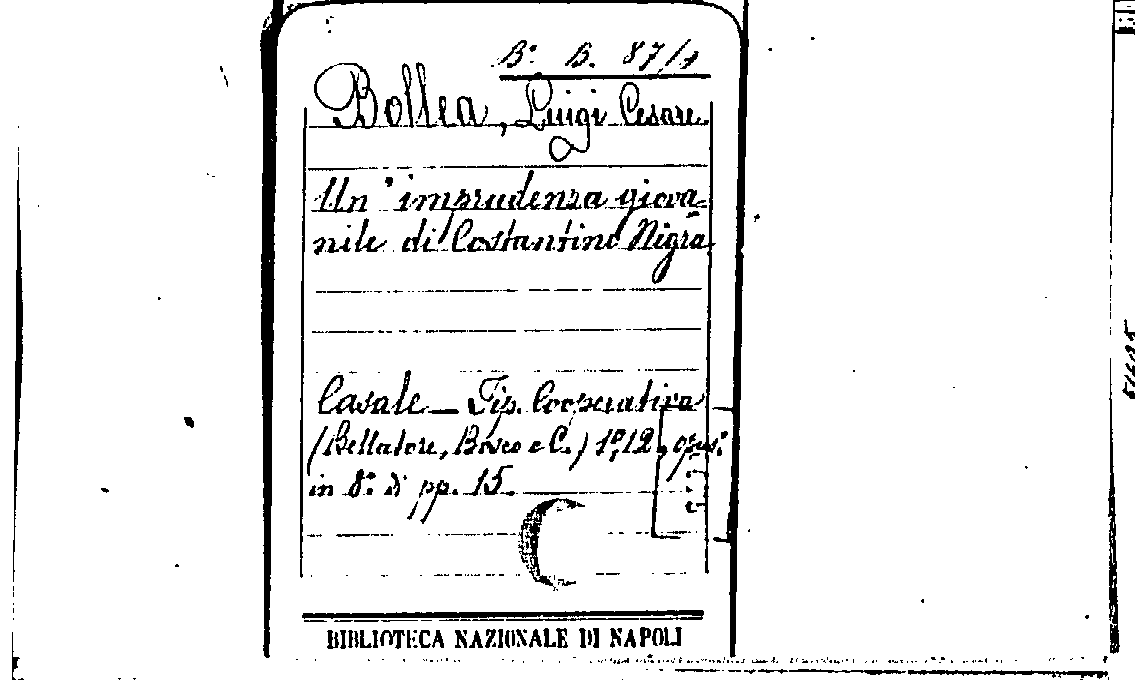 Ba B. 87/7
Bollea, Luigi Cesare
Un'imprudenza giova-
nile di Costantino Nigra
Casale _ Tip. Cooperativa
(Bellatore, Bosco e C.) 1912, opus.
in 8.° di pp. 15.
BIBLIOTECA NAZIONALE DI NAPOLI